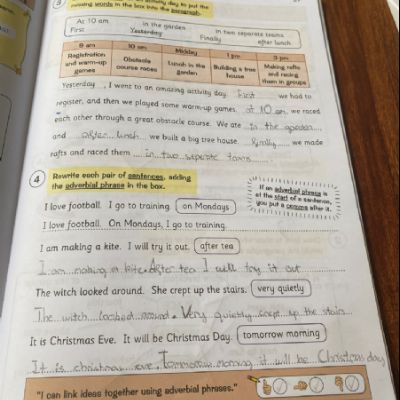 activity day to put the
missing words in the box into the paragraph.
At 10 am in the garden in two separate teams
First Yesterday Finally after lunch
9 am 10 am Midday 1 pm 3 pm
Registration and warm-up games Obstacle course races Lunch in the garden Building a tree house Making rafts and racing them in groups
Yesterday, I went to an amazing activity day. First we had to
register, and then we played some warm-up games. at 10 am we raced
each other through a great obstacle course. We ate in the garden
and after lunch we built a big tree house. Finally we made
rafts and raced them in two separate teams
4 Rewrite each pair of sentences, adding
the adverbial phrase in the box.
If an adverbial phrase is
at the start of a sentence,
you put a comma after it.
I love football. I go to training. on Mondays
I love football. On Mondays, I go to training.
I am making a kite. I will try it out. after tea
I am making a kite. After tea I will try it out
The witch looked around. She crept up the stairs. very quietly
The witch looked around. Very quietly crept up the stairs
It is Christmas Eve. It will be Christmas Day. tomorrow morning
It is christmas eve. Tomorrow morning it will be Christmas day
"I can link ideas together using adverbial phrases."